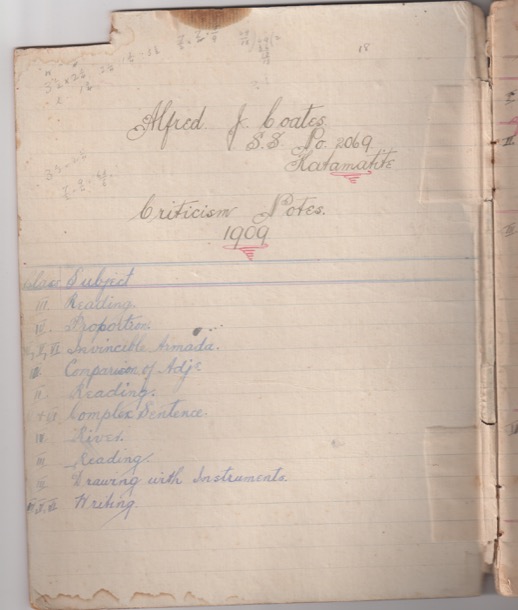 18
Alfred J. Coates.
S.S. No. 2069
Katamatite
Criticism Notes.
1909
Class Subject
III. Reading.
Proportion.
Invincible Armada.
Comparison of Adjs
II. Reading.
Complex Sentence.
River.
III Reading.
Drawing with Instruments.
Writing.